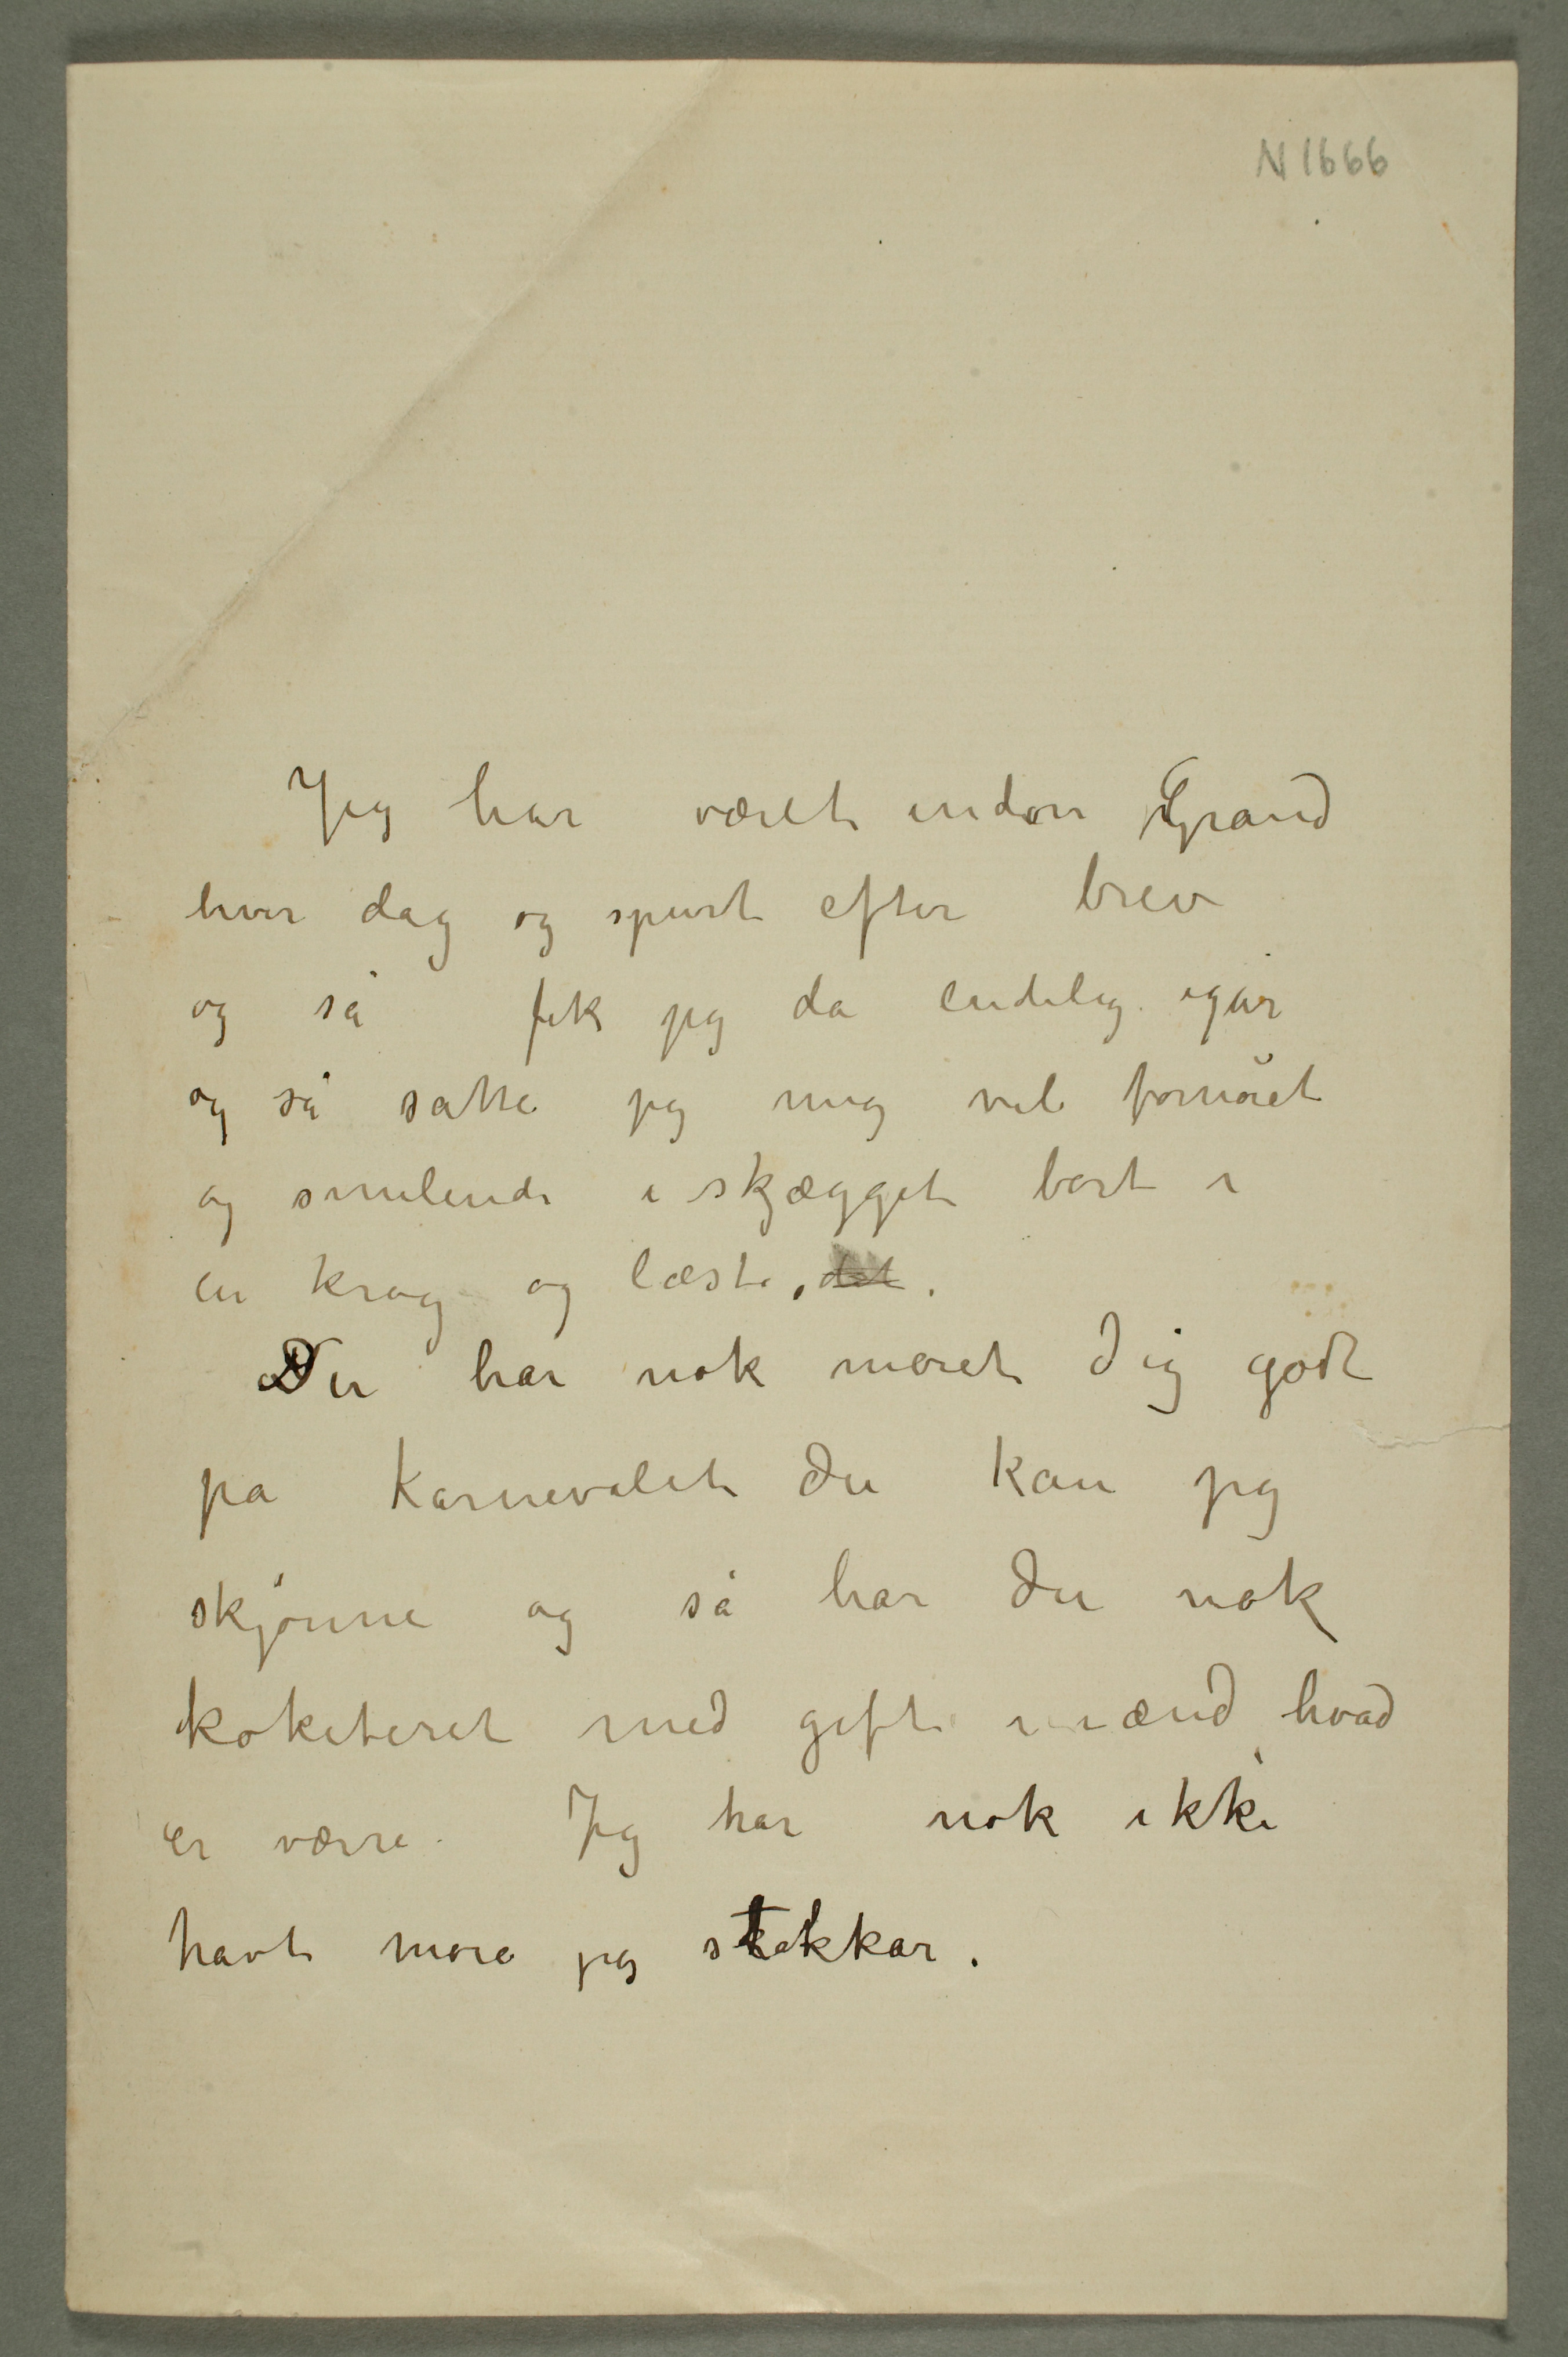 N 1666
Jeg har været indom Grand
hver dag og spurt efter brev
og så fik jeg da endelig igår
og så satte jeg mig vel fornöiet
og smilende i skjægget bort i
en krog og læste, det.
Du har nok moret dig godt
på karnevalet du kan jeg
skjönne og så har du nok
koketeret med gifte mænd hvad
er værre. Jeg har nok ikke
havt mora jeg stakkar.